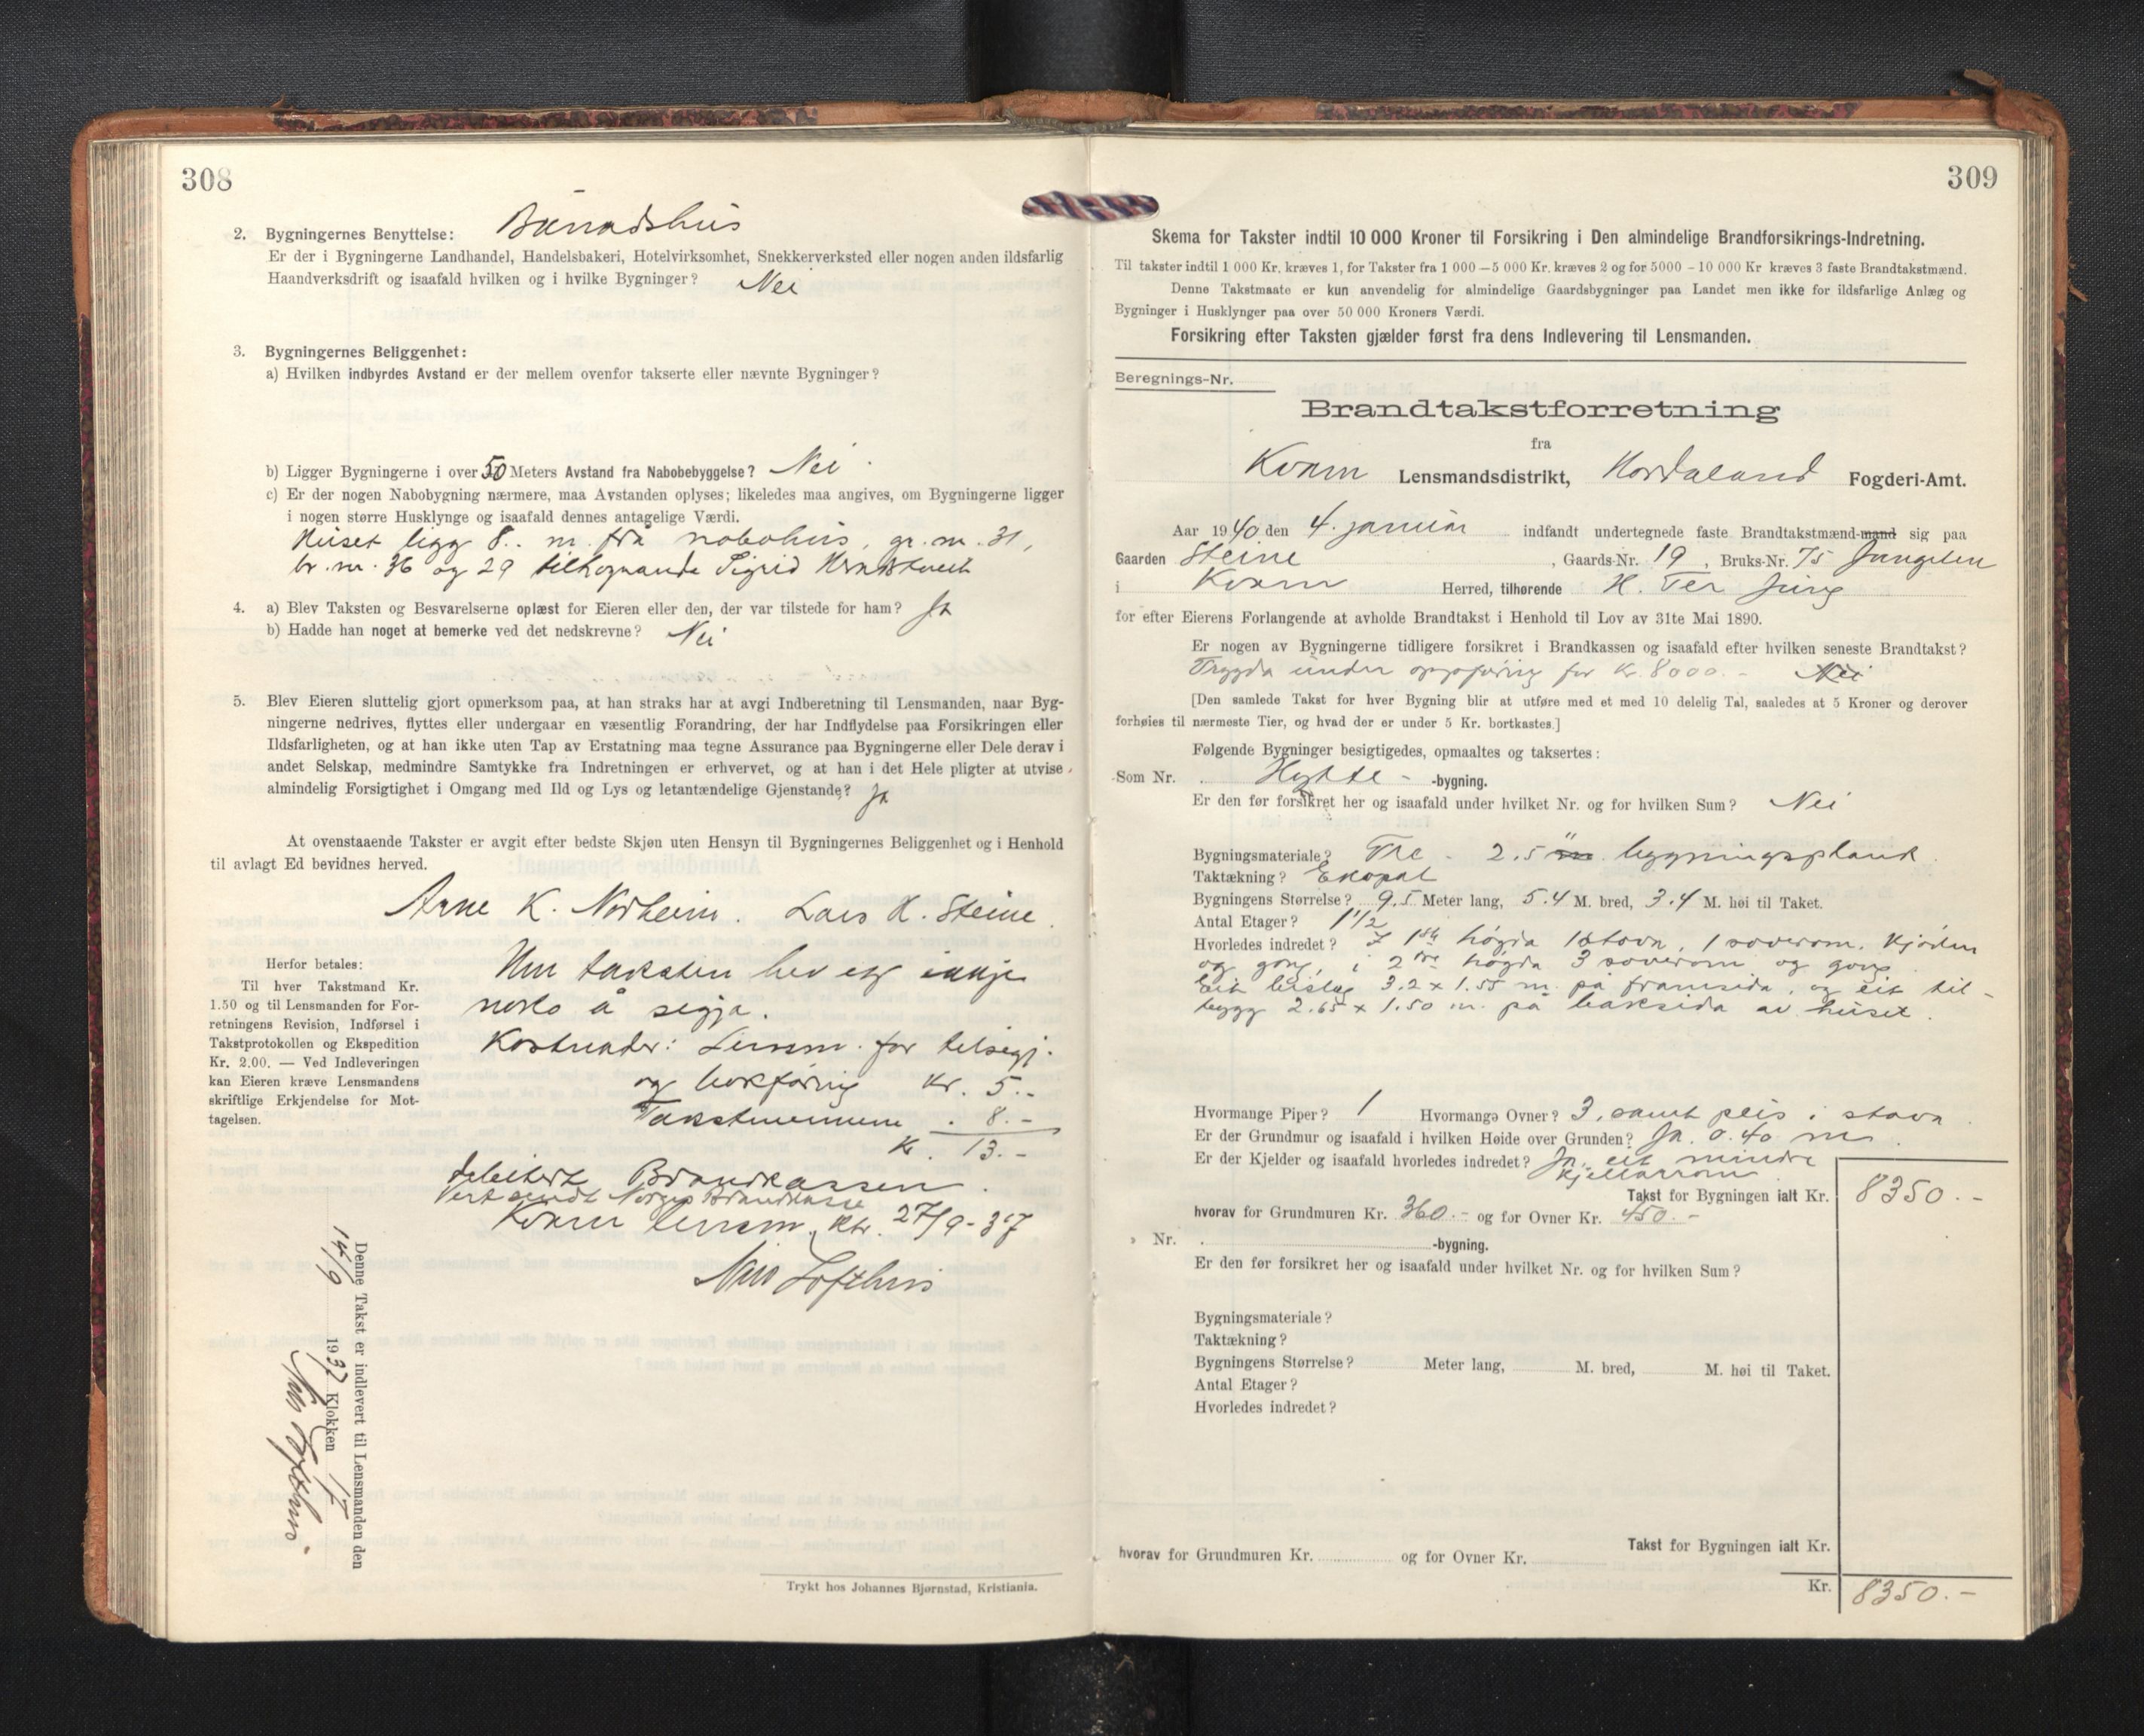 308
2. Bygningernes Benyttelse:
Er der i Bygningerne Landhandel, Handelsbakeri, Hotelvirksomhet, Snekkerverksted eller nogen anden ildsfarlig
Haandverksdrift og isaafald hvilken og i hvilke Bygninger? Nei
3. Bygningernes Beliggenhet:
a) Hvilken indbyrdes Avstand er der mellem ovenfor takserte eller nævnte Bygninger?
b) Ligger Bygningerne i over 50 Meters Avstand fra Nabobebyggelse? Nei
c) Er der nogen Nabobygning nærmere, maa Avstanden oplyses; likeledes maa angives, om Bygningerne ligger
i nogen større Husklynge og isaafald dennes antagelige Værdi.
Huset ligg 8.. m. frå nabohus, gr. nr. 31,
br. nr. 36 og 29 tilhøyrande Sigrid
4. a) Blev Taksten og Besvarelserne oplæst for Eieren eller den, der var tilstede for ham? Ja
b) Hadde han noget at bemerke ved det nedskrevne? Nei
5. Blev Eieren sluttelig gjort opmerksom paa, at han straks har at avgi Indberetning til Lensmanden, naar Byg-
ningerne nedrives, flyttes eller undergaar en væsentlig Forandring, der har Indflydelse paa Forsikringen eller
Ildsfarligheten, og at han ikke uten Tap av Erstatning maa tegne Assurance paa Bygningerne eller Dele derav i
andet Selskap, medmindre Samtykke fra Indretningen er erhvervet, og at han i det Hele pligter at utvise
almindelig Forsigtighet i Omgang med Ild og Lys og letantændelige Gjenstande? Ja
At ovenstaaende Takster er avgit efter bedste Skjøn uten Hensyn til Bygningernes Beliggenhet og i Henhold
til avlagt Ed bevidnes herved.
Arne K. Norheim. Lars K. Steine.
Herfor betales:
Til hver Takstmand Kr.
1.50 og til Lensmanden for For-
retningens Revision, Indførsel i
Takstprotokollen og Ekspedition
Kr. 2.00. — Ved Indleveringen
kan Eieren kræve Lensmandens
skriftlige Erkjendelse for Mot-
tagelsen.
Um taksten hev eg ikkje
noko å segja.
Kostnader: Lensm. for tilsegj.
og bokføring Kr. 5.-
Takstmennene . 8.-
Kr. 13.-
debitert Brandkassen.
Vert sendt Norges Brandkasse
Kvam lensm. ktr. 27/9-37
Nils Lofthus
Denne Takst er indlevert til Lensmanden den
19/9 1937 Klokken 17
Nils Lofthus.
Trykt hos Johannes Bjørnstad, Kristiania.
309
Skema for Takster indtil 10 000 Kroner til Forsikring i Den almindelige Brandforsikrings-Indretning.
Til takster indtil 1 000 Kr. kræves 1, for Takster fra 1 000 – 5 000 Kr. kræves 2 og for 5000 – 10 000 Kr kræves 3 faste Brandtakstmænd.
Denne Takstmaate er kun anvendelig for almindelige Gaardsbygninger paa Landet men ikke for ildsfarlige Anlæg og
Bygninger i Husklynger paa over 50 000 Kroners Værdi.
Forsikring efter Taksten gjælder først fra dens Indlevering til Lensmanden.
Beregnings-Nr.
Brandtakstforretning
fra
Kvam Lensmandsdistrikt, Hordaland Fogderi-Amt.
Aar 1940 den 4. januar indfandt undertegnede faste Brandtakstmænd-mand sig paa
Gaarden Steine, Gaards-Nr. 19, Bruks-Nr. 75
i Kvam Herred, tilhørende H. Ter Jung
for efter Eierens Forlangende at avholde Brandtakst i Henhold til Lov av 31te Mai 1890.
Er nogen av Bygningerne tidligere forsikret i Brandkassen og isaafald efter hvilken seneste Brandtakst?
Trygda under oppføring for kr. 8000.- Nei
[Den samlede Takst for hver Bygning blir at utføre med et med 10 delelig Tal, saaledes at 5 Kroner og derover
forhøies til nærmeste Tier, og hvad der er under 5 Kr. bortkastes.]
Følgende Bygninger besigtigedes, opmaaltes og taksertes:
Som Nr. Hytte- -bygning.
Er den før forsikret her og isaafald under hvilket Nr. og for hvilken Sum? Nei
Bygningsmateriale? Tre - 2.5" m. bygningsplank.
Taktækning? Ekopal
Bygningens Størrelse? 9.5 Meter lang, 5.4 M. bred, 3.4 M. høi til Taket.
Antal Etager? 1 1/2
Hvorledes indredet? I 1ste høgda 1 stova, 1 soverom, kjøken
og gong, i 2dre høgda 3 soverom og gong
Eit bislag 3.2 x 1.55 m. på framsida, og eit til-
bygg 2.65 x 1.50 m. på baksida av huset.
Hvormange Piper? 1 Hvormange Ovner? 3, samt peis i stova
Er der Grundmur og isaafald i hvilken Høide over Grunden? Ja. 0.40 m.
Er der Kjelder og isaafald hvorledes indredet? Ja, eit mindre
kjellarrom
Takst for Bygningen ialt Kr. 8350.-
hvorav for Grundmuren Kr. 360.- og for Ovner Kr. 450.-
» Nr. -bygning.
Er den før forsikret her og isaafald under hvilket Nr. og for hvilken Sum?
Bygningsmateriale?
Taktækning?
Bygningens Størrelse? Meter lang, M. bred, M. høi til Taket.
Antal Etager?
Hvorledes indredet?
Takst for Bygningen ialt Kr.
hvorav for Grundmuren Kr. og for Ovner Kr.
Kr. 8350.-